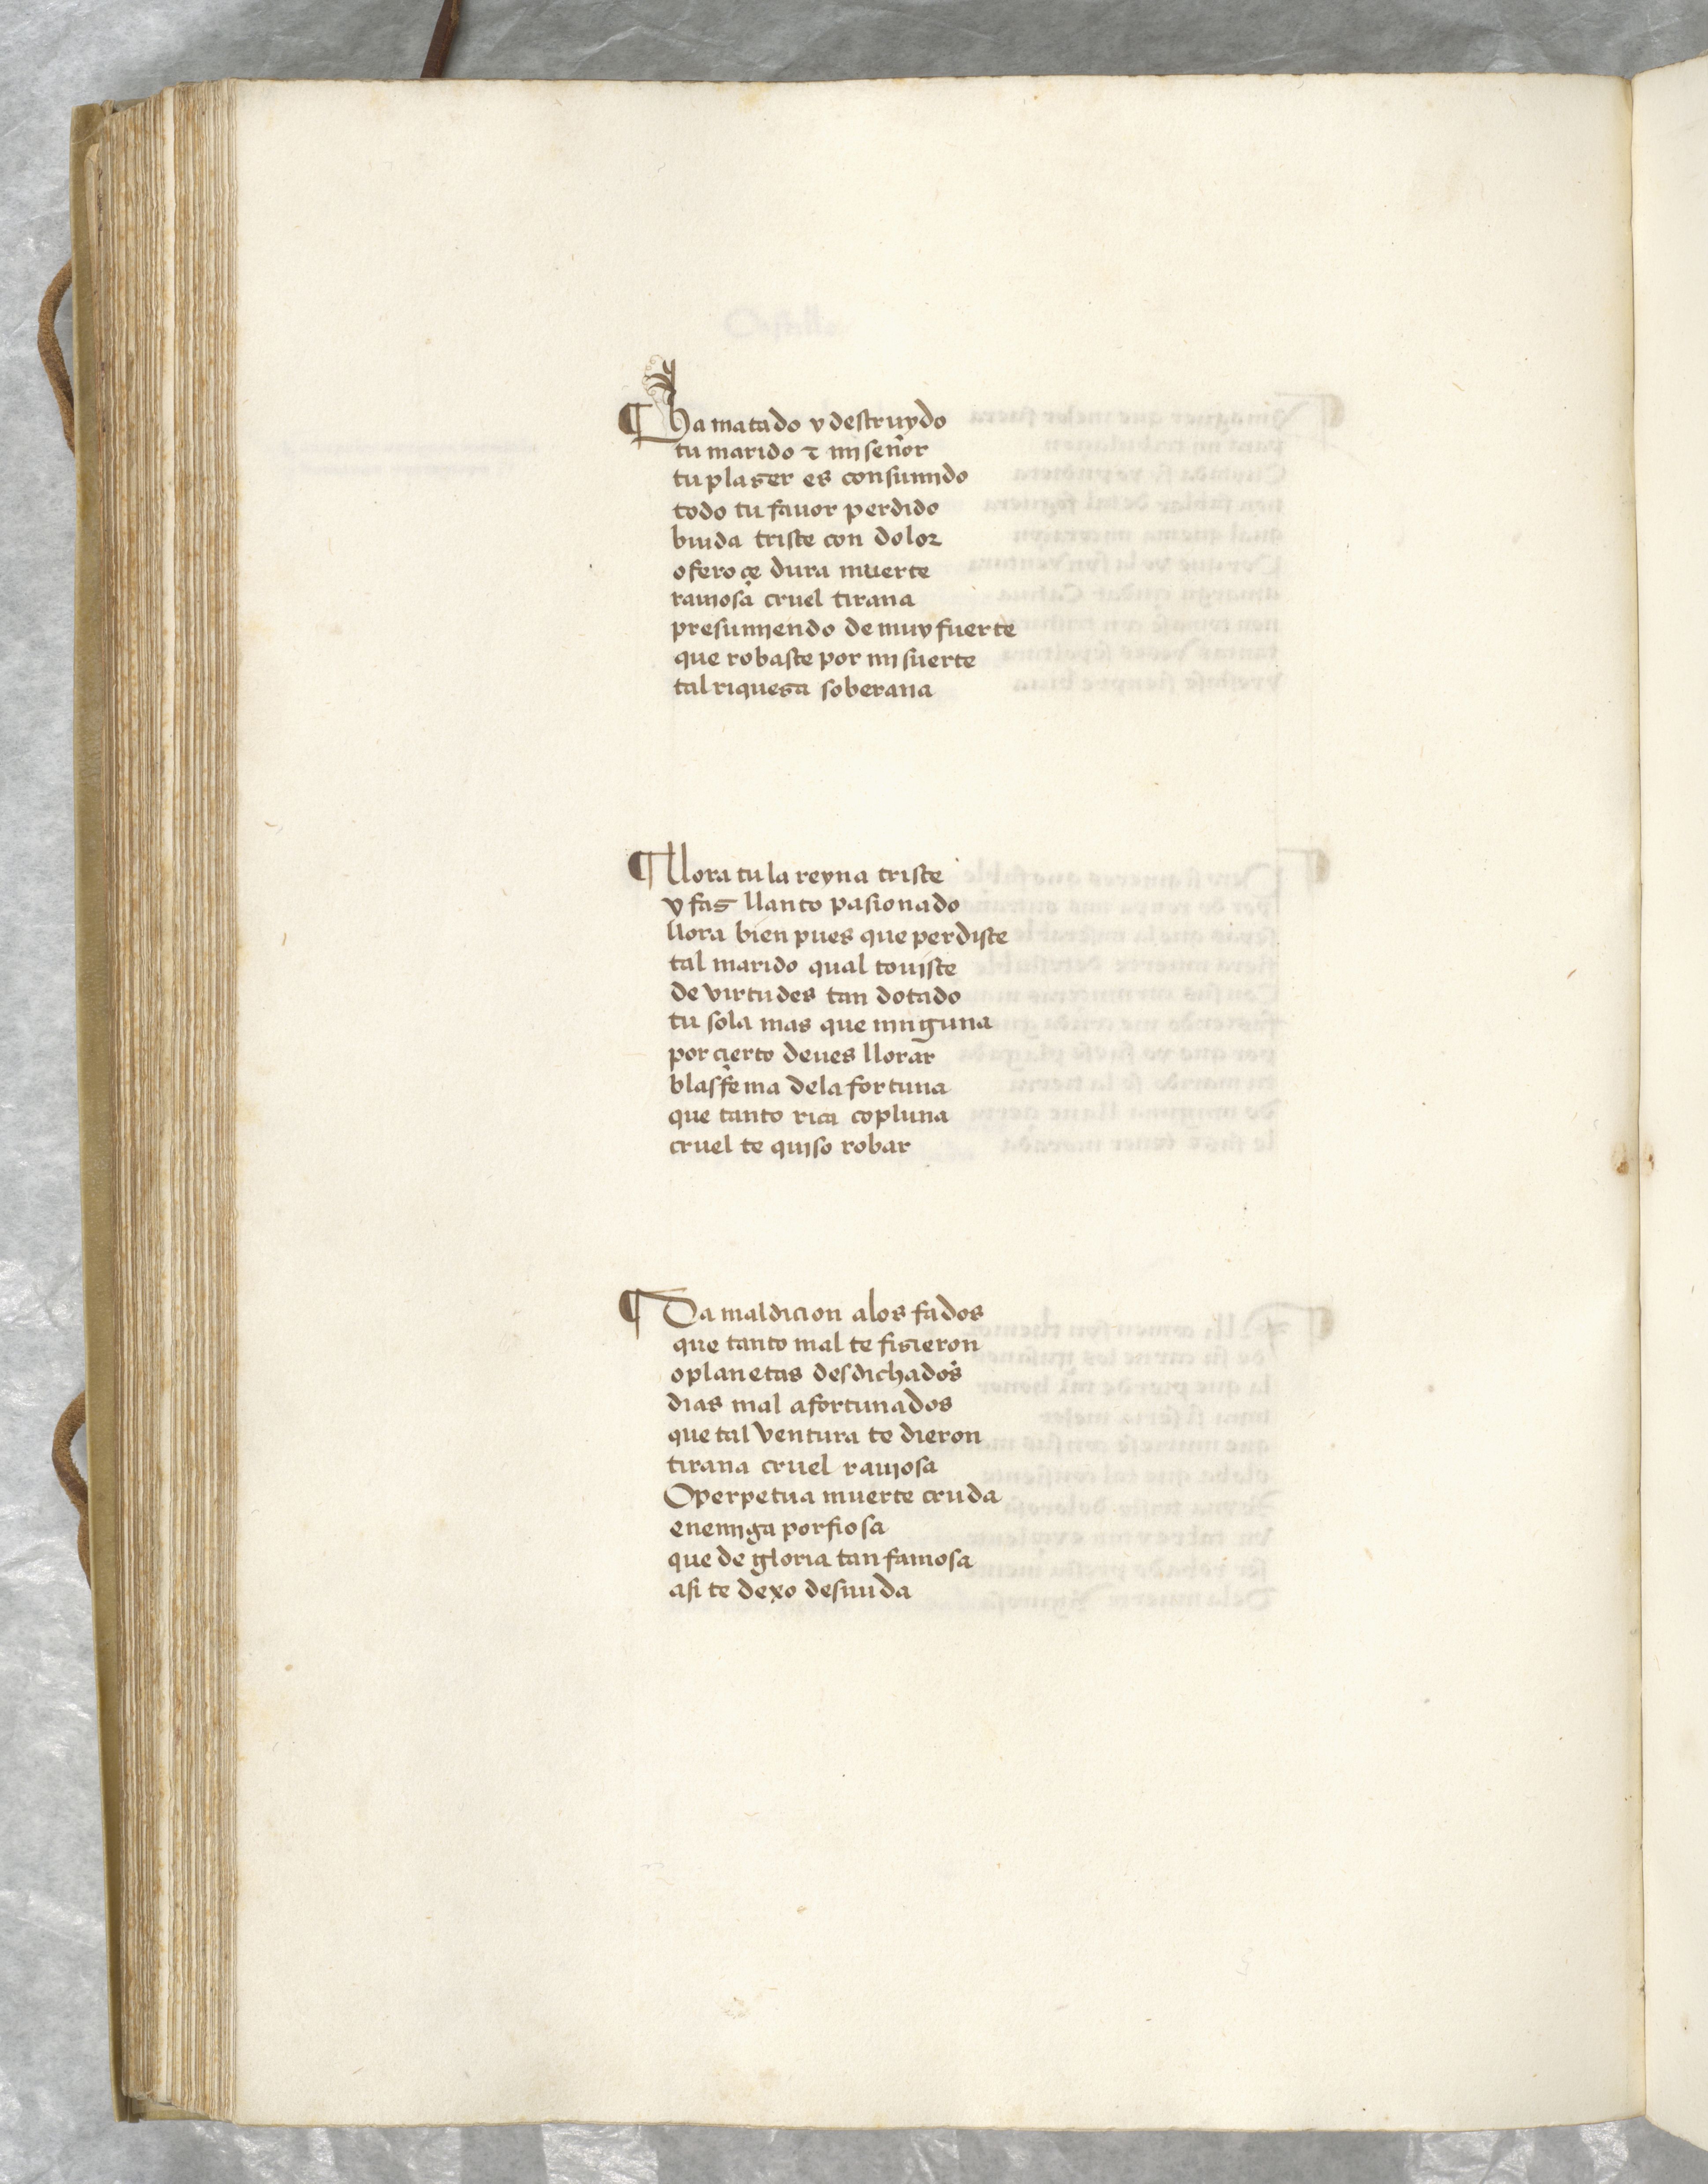 ¶ Ha matado y destruydo
tu marido τ mi señor
tu plaser es consumido
todo tu fauor perdido
biuda triste con dolor
o feroçe dura muerte
rauiosa cruel tirana
presumiendo de muy fuerte
que robaste por mi suerte
tal riquesa soberana
¶ llora tu la reyna triste
y fas llanto pasionado
llora bien pues que perdiste
tal marido qual touiste
de virtudes tan dotado
tu sola mas que ninguna
por çierto deues llorar
blasfema dela fortuna
que tanto rica copluna
cruel te quiso robar
¶ Da maldicion alos fados
que tanto mal te fisieron
o planetas desdichados
dias mal afortunados
que tal ventura te dieron
tirana cruel rauiosa
O perpetua muerte cruda
enemiga porfiosa
que de gloria tan famosa
asi te dexo desnuda